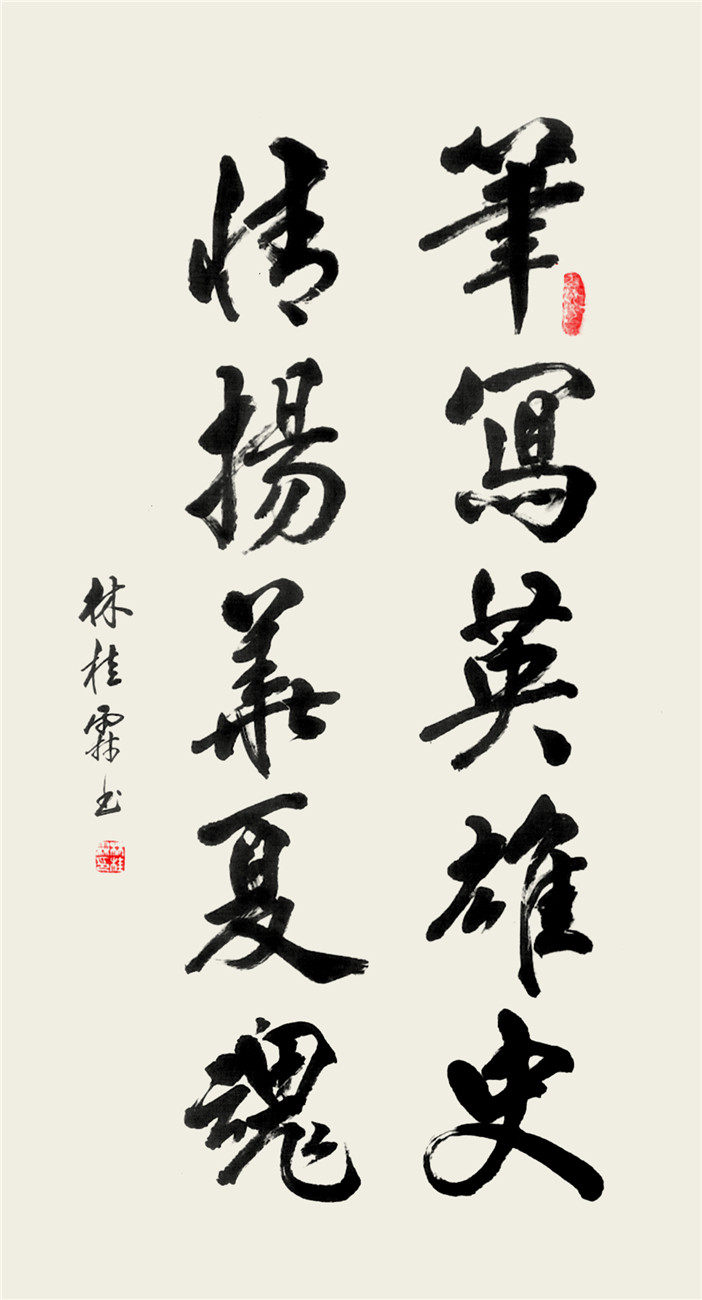 筆寫英雄史
情揚華夏魂
林桂霖书